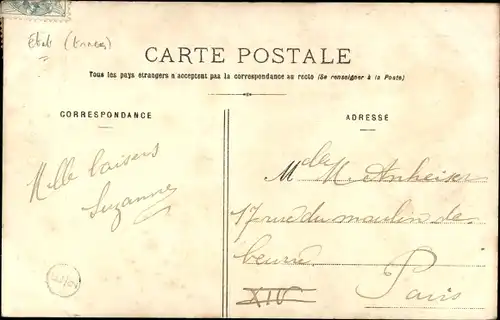 CARTE POSTALE
Tous les pays étrangers n'acceptent pas la correspondance au recto (Se renseigner à la Poste)
CORRESPONDANCE
ADRESSE
Mille baisers
Suzanne
M. Anheiser
17 rue du moulin de
beurre
Paris
XIV